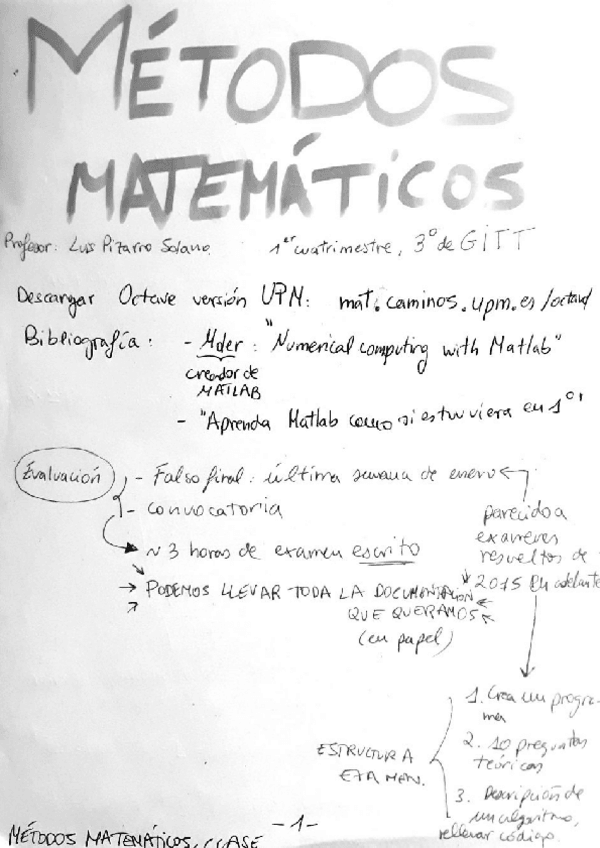 MÉTODOS
MATEMÁTICOS
Profesor: Luis Pizarro Solano. 1er cuatrimestre, 3º de GITT
Descargar Octave versión UPM: mat.caminos.upm.es/octave
Bibliografía: - Moler: "Numerical computing with Matlab"
creador de
MATLAB
- "Aprenda Matlab como si estuviera en 1º"
Evaluación
- Falso final: última semana de enero
- convocatoria
~ 3 horas de examen escrito
→ PODEMOS LLEVAR TODA LA DOCUMENTACIÓN
QUE QUERAMOS
(en papel)
parecido a
exámenes
resueltos de
2015 en adelante
ESTRUCTURA
EXAMEN.
1. Crea un progra-
ma
2. 10 preguntas
teóricas
3. Descripción de
un algoritmo,
rellenar código.
-1-
MÉTODOS MATEMÁTICOS, CLASE